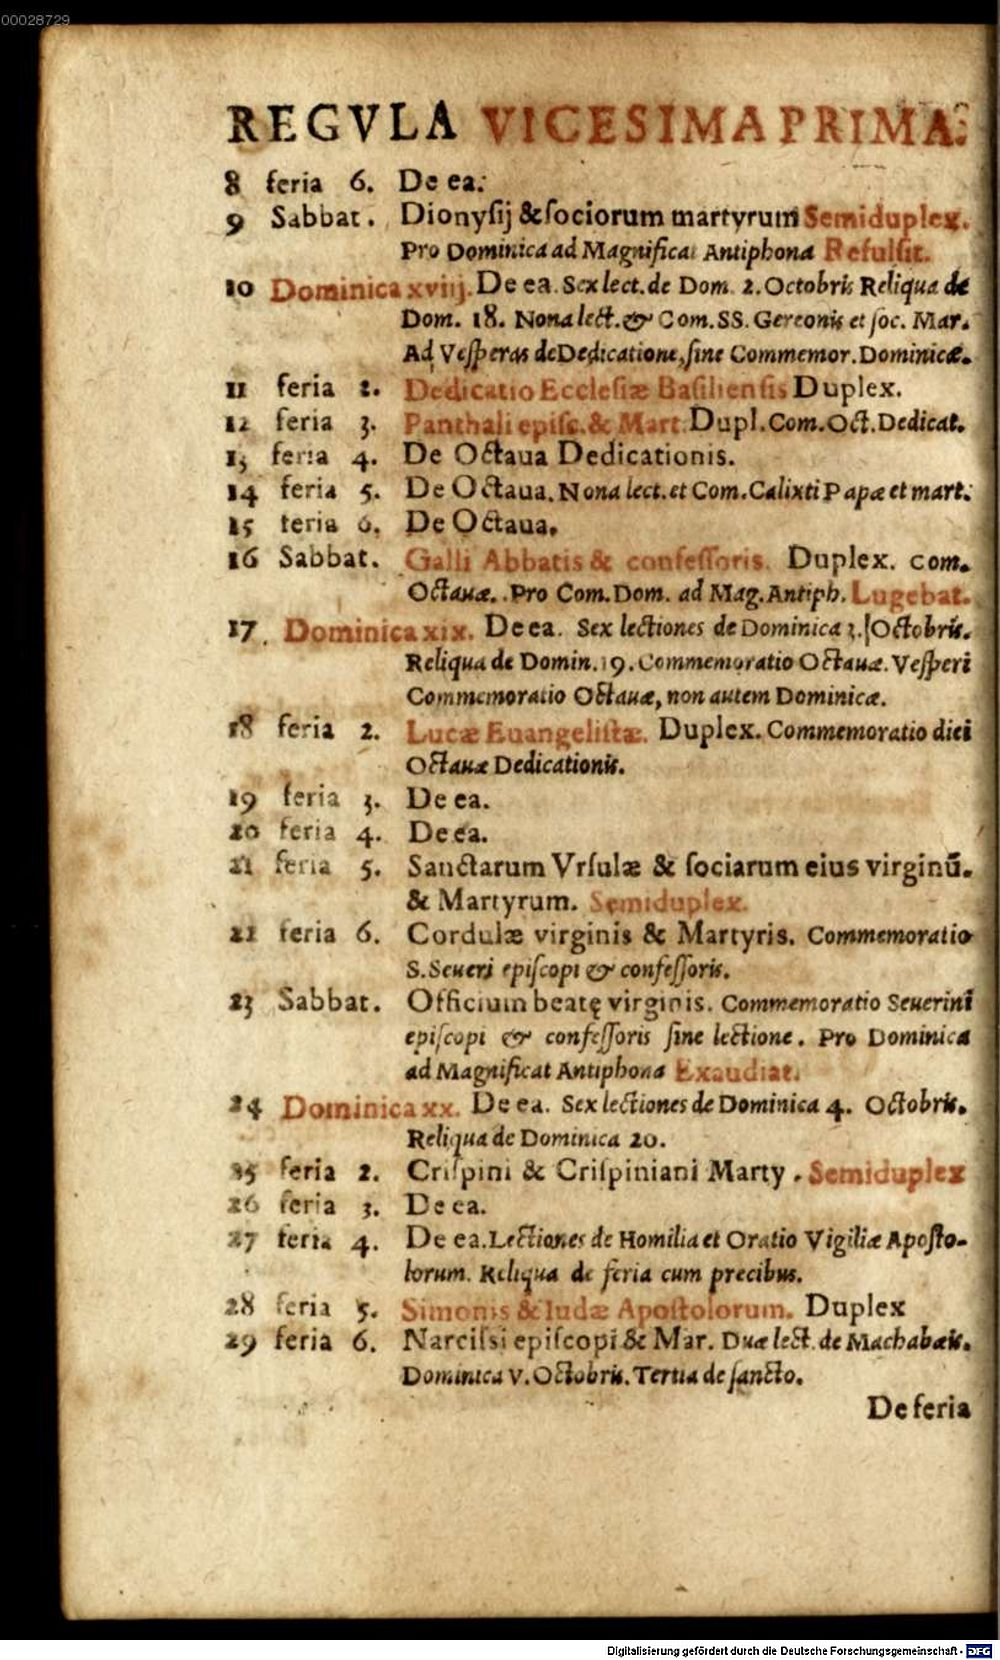 00028729
REGVLA VICESIMA PRIMA.
8 feria 6. De ea.
9 Sabbat. Dionyſij & ſociorum martyrum Semiduplex.
Pro Dominica ad Magnificat Antiphona Refulſit.
10 Dominica xviij. De ea. Sex lect. de Dom. 2. Octobris Reliqua de
Dom. 18. Nona lect. & Com. SS. Gereonis et ſoc. Mar.
Ad Veſperas de Dedicatione, ſine Commemor. Dominicæ.
11 feria 2. Dedicatio Eccleſiæ Baſilienſis Duplex.
12 feria 3. Panthali epiſc. & Mart. Dupl. Com. Oct. Dedicat.
13 feria 4. De Octaua Dedicationis.
14 feria 5. De Octaua. Nona lect. et Com. Calixti Papæ et mart.
15 feria 6. De Octaua.
16 Sabbat. Galli Abbatis & confeſſoris. Duplex. com.
Octauæ. Pro Com. Dom. ad Mag. Antiph. Lugebat.
17. Dominica xix. De ea. Sex lectiones de Dominica 3. Octobris.
Reliqua de Domin. 19. Commemoratio Octauæ. Veſperi
Commemoratio Octauæ, non autem Dominicæ.
18 feria 2. Lucæ Euangeliſtæ. Duplex. Commemoratio diei
Octauæ Dedicationis.
19 feria 3. De ea.
20 feria 4. De ea.
21 feria 5. Sanctarum Vrſulæ & ſociarum eius virginū.
& Martyrum. Semiduplex.
22 feria 6. Cordulæ virginis & Martyris. Commemoratio
S. Seueri epiſcopi & confeſſoris.
23 Sabbat. Officium beatę virginis. Commemoratio Seuerini
epiſcopi & confeſſoris ſine lectione. Pro Dominica
ad Magnificat Antiphona Exaudiat.
24 Dominica xx. De ea. Sex lectiones de Dominica 4. Octobris.
Reliqua de Dominica 20.
25 feria 2. Criſpini & Criſpiniani Marty. Semiduplex
26 feria 3. De ea.
27 feria 4. De ea. Lectiones de Homilia et Oratio Vigiliæ Apoſto-
lorum. Reliqua de feria cum precibus.
28 feria 5. Simonis & Iudæ Apoſtolorum. Duplex
29 feria 6. Narciſsi epiſcopi & Mar. Duæ lect. de Machabæis.
Dominica V. Octobris. Tertia de ſancto.
De feria
Digitalisierung gefördert durch die Deutsche Forschungsgemeinschaft - DFG